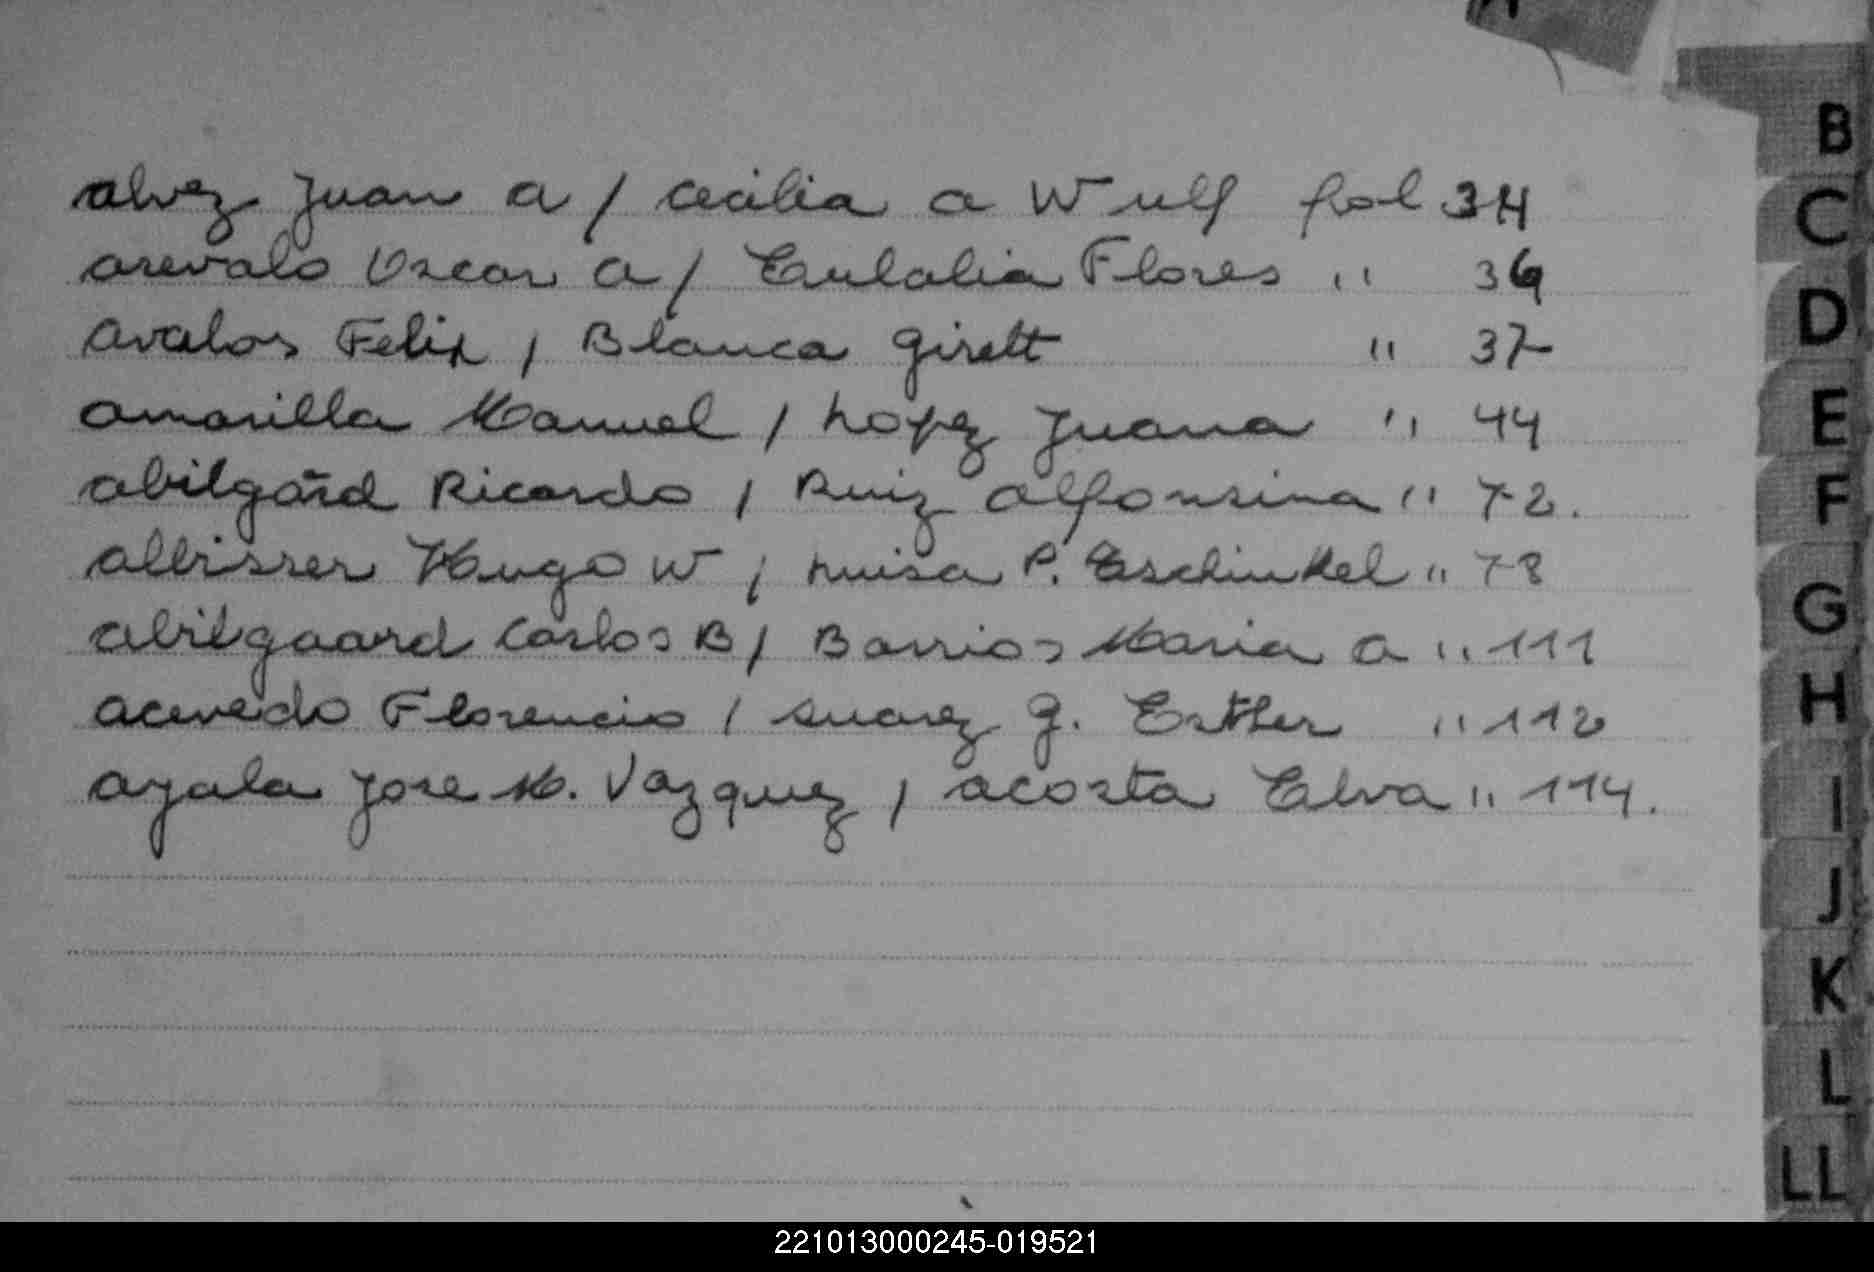 alvez Juan a / cecilia a Wulf fol 34
arevalo Oscar a / Eulalia Flores " 36
avalos Felix / Blanca Girett " 37
amarilla Manuel / Lopez Juana " 44
abilgard Ricardo / Ruiz alfonsina " 72.
albisser Hugo W / Luisa P. Eschinkel " 78
abilgaard Carlos B / Barrios Maria a " 111
acevedo Florencio / Suarez G. Esther " 112
ayala Jose M. Vazquez / acosta Elva " 114.
B
C
D
E
F
G
H
I
J
K
L
LL
221013000245-019521